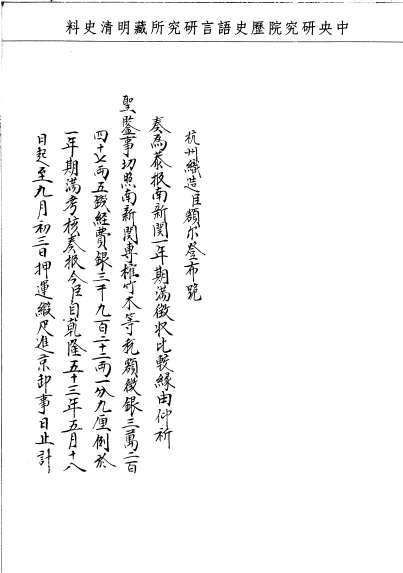 中央研究院歷史語言研究所藏明清史料
杭州織造臣額尔登布跪
奏為恭报南新関一年期滿徵收比較緣由仰祈
聖鑒事切照南新関專榷竹木等税額徵銀三萬二百
四十七両五錢経費銀三千九百二十三両一分九厘例於
一年期滿考核奏报今臣自乾隆五十三年五月十八
日起至九月初三日押運緞疋進京卸事日止計